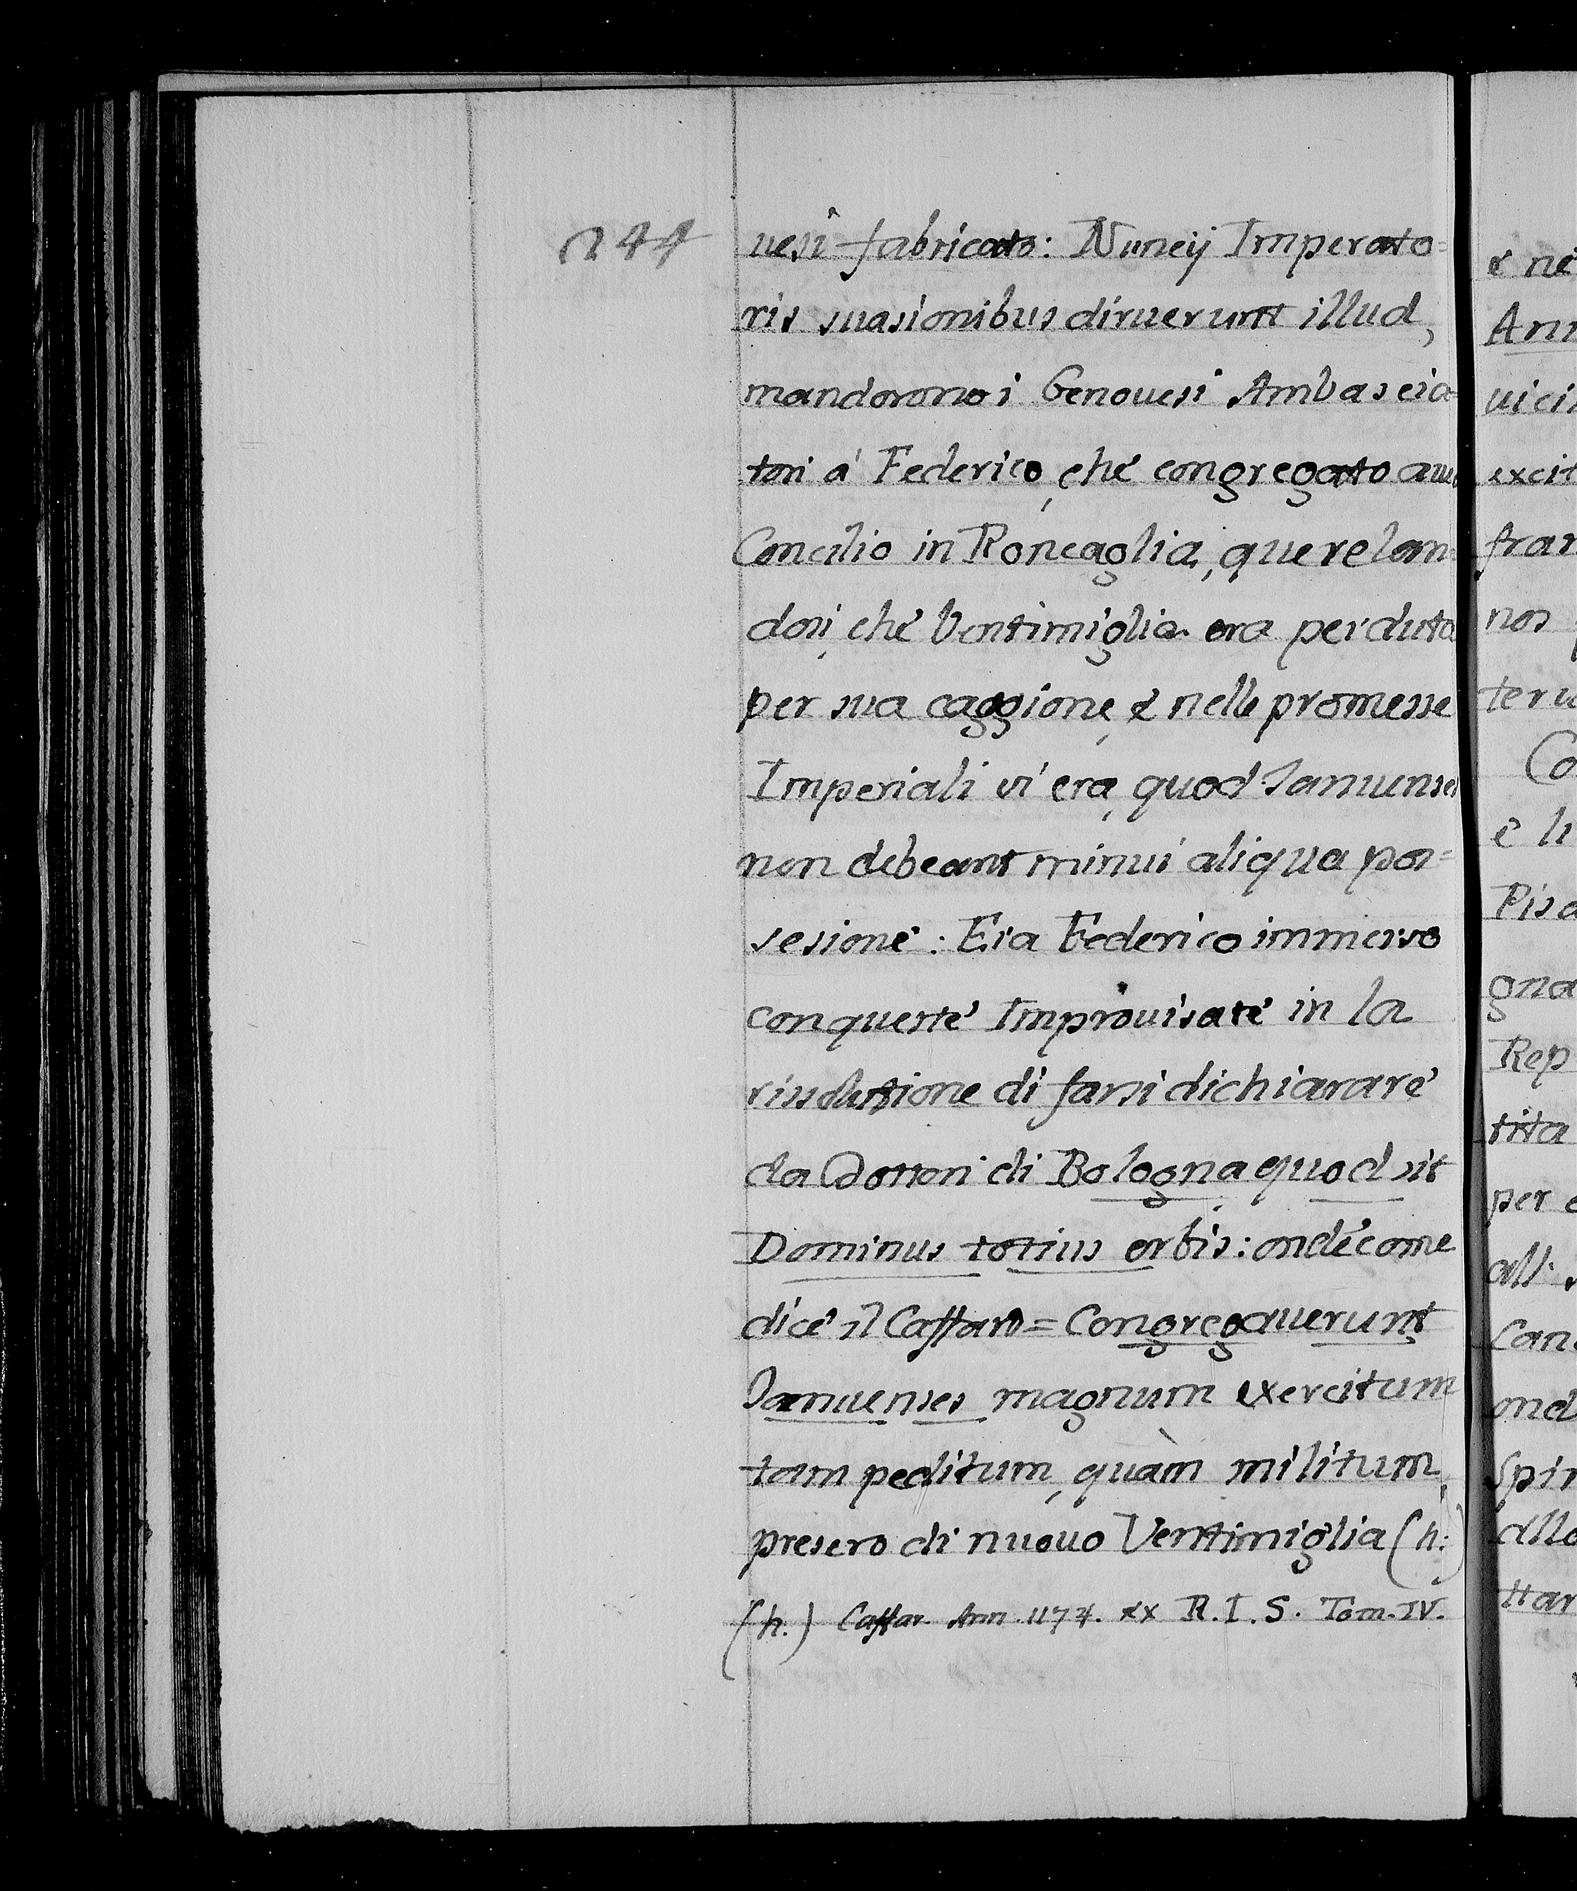 244
uesi fabricato: Nuncij Imperato=
ris suasionibus diruerunt illud,
mandorono i Genouesi Ambascia=
tori à Federico, ché congregato aue
Concilio in Roncaglia, querelan=
dosi, ché Ventimiglia era perduta
per sua caggione, & nelle promesse
Imperiali vi era, quod Januenses
non debeant minui aliqua pos=
sesione: Era Federico immerso
con queste Improuisate in la
rissolutione di farsi dichiarare
da Dottori di Bologna quod sit
Dominus totius orbis: ondé come
dicé il Caffaro = Congregauerunt
Januenses magnum exercitum
tam peditum, quàm militum,
presero di nuouo Ventimiglia (h:)
(h.) Caffar. Ann. 1174. ex R. I. S. Tom. IV.
& né
Ann
uici
excit
fran
nos
teru
Co
e li
Pisa
gna
Rep
tita
per
all.
Can
ond
Spin
allo
ttar